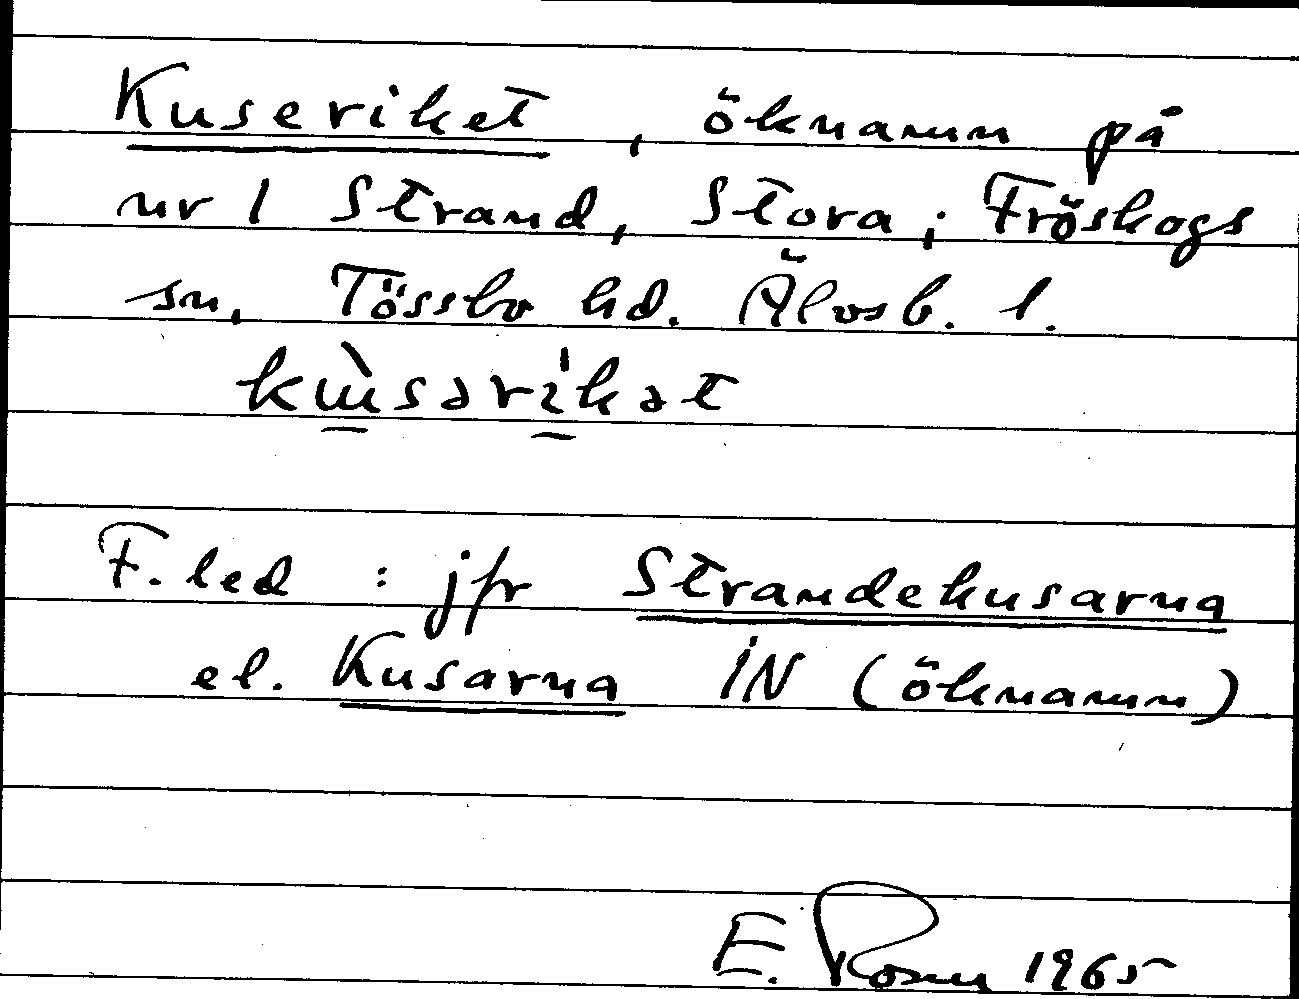 Kuseriket, öknamn på
nr 1 Strand, Stora; Fröskogs
sn, Tössbo hd. Älvsb. l.
F. led : jfr Strandekusarna
el. Kusarna IN (öknamn)
E. 1965